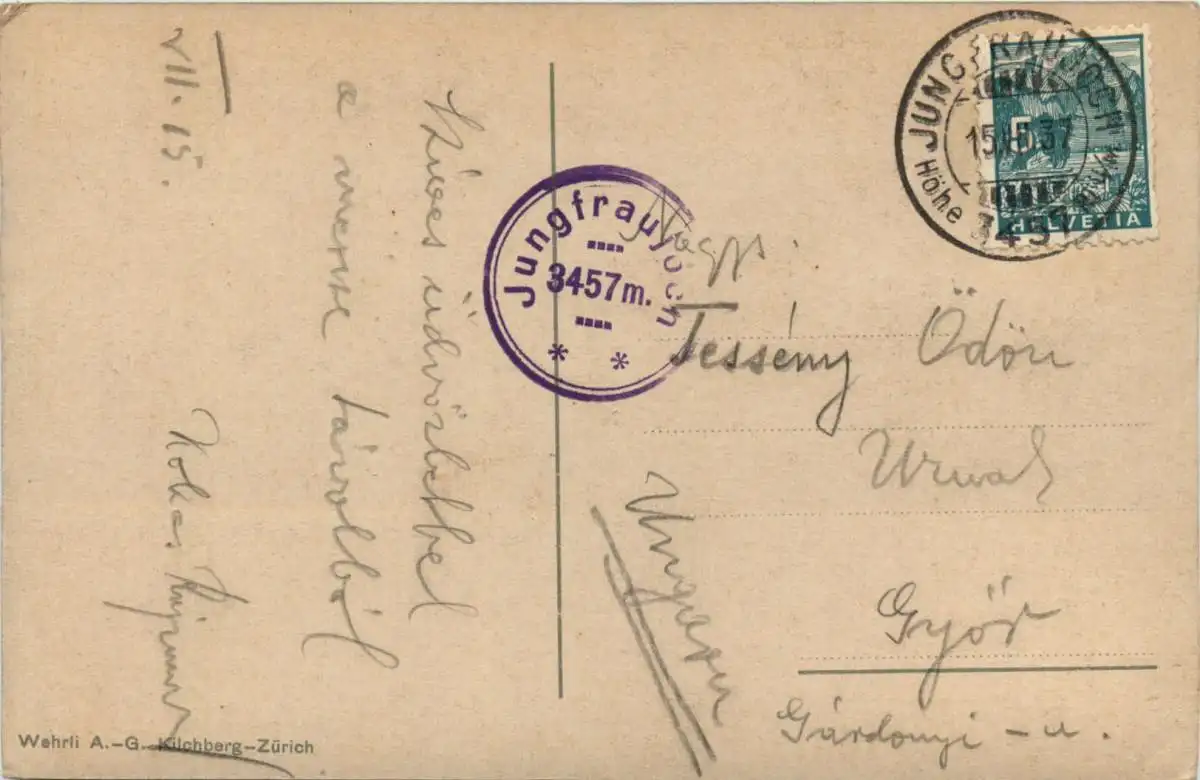 VII. 15.
Szíves üdvözlettel
a messze távolból
Jungfraujoch
3457 m.
JUNGFRAUJOCH
15. 37
Höhe 3457
5
HELVETIA
Nags.
Tessény Ödön
Urnak
Győr
Gárdonyi-u.
Ungarn
Wehrli A.-G. Kilchberg-Zürich